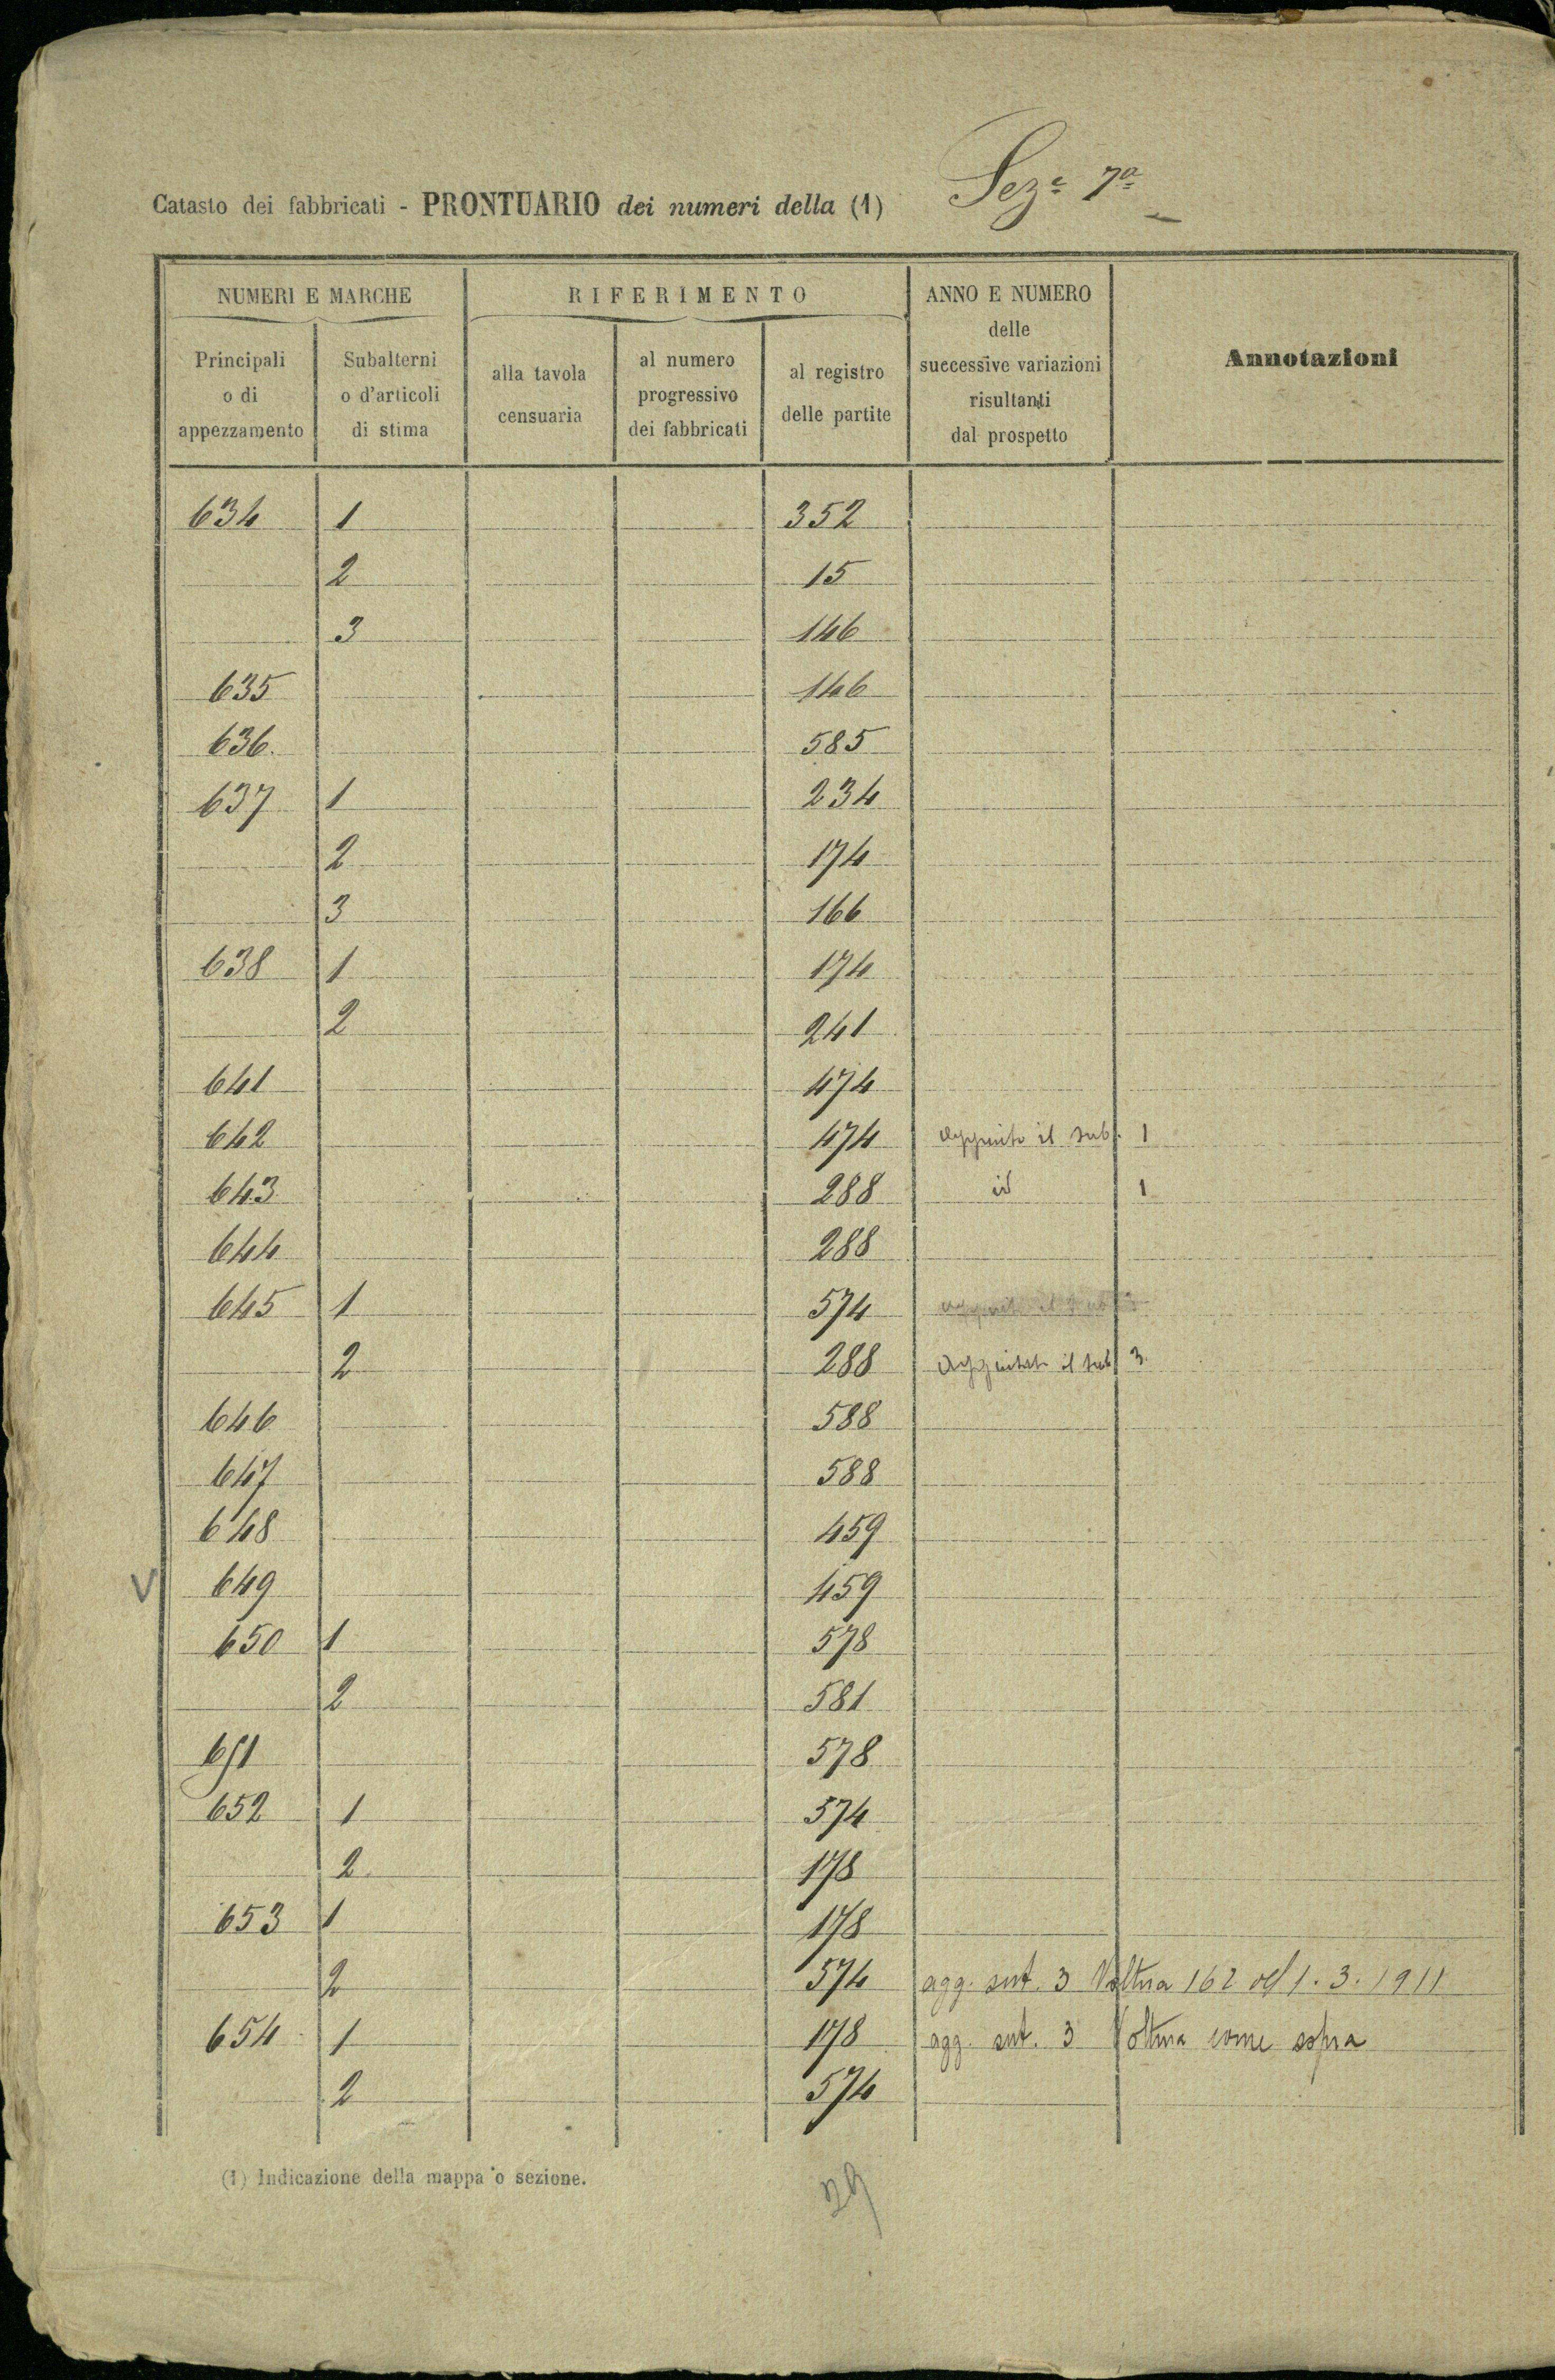 Catasto dei fabbricati - PRONTUARIO dei numeri della (1) Sez.e 7a
NUMERI E MARCHE
RIFERIMENTO
ANNO E NUMERO
delle
successive variazioni
risultanti
dal prospetto
Annotazioni
Principali
o di
appezzamento
Subalterni
o d'articoli
di stima
alla tavola
censuaria
al numero
progressivo
dei fabbricati
al registro
delle partite
634 1 352
2 15
3 146
635 146
636 585
637 1 234
2 174
3 166
638 1 174
2 241
641 474
642 474 il sub. 1
643 288 id 1
644 288
645 1 574
2 288 il sub 3
646 588
647 588
648 459
V 649 459
650 1 578
2 581
651 578
652 1 574
2 178
653 1 178
2 574 agg. sut. 3 Voltura 162 del 1.3.1911
654 1 178 agg. sut. 3 Voltura come sopra
2 574
(1) Indicazione della mappa o sezione.
29